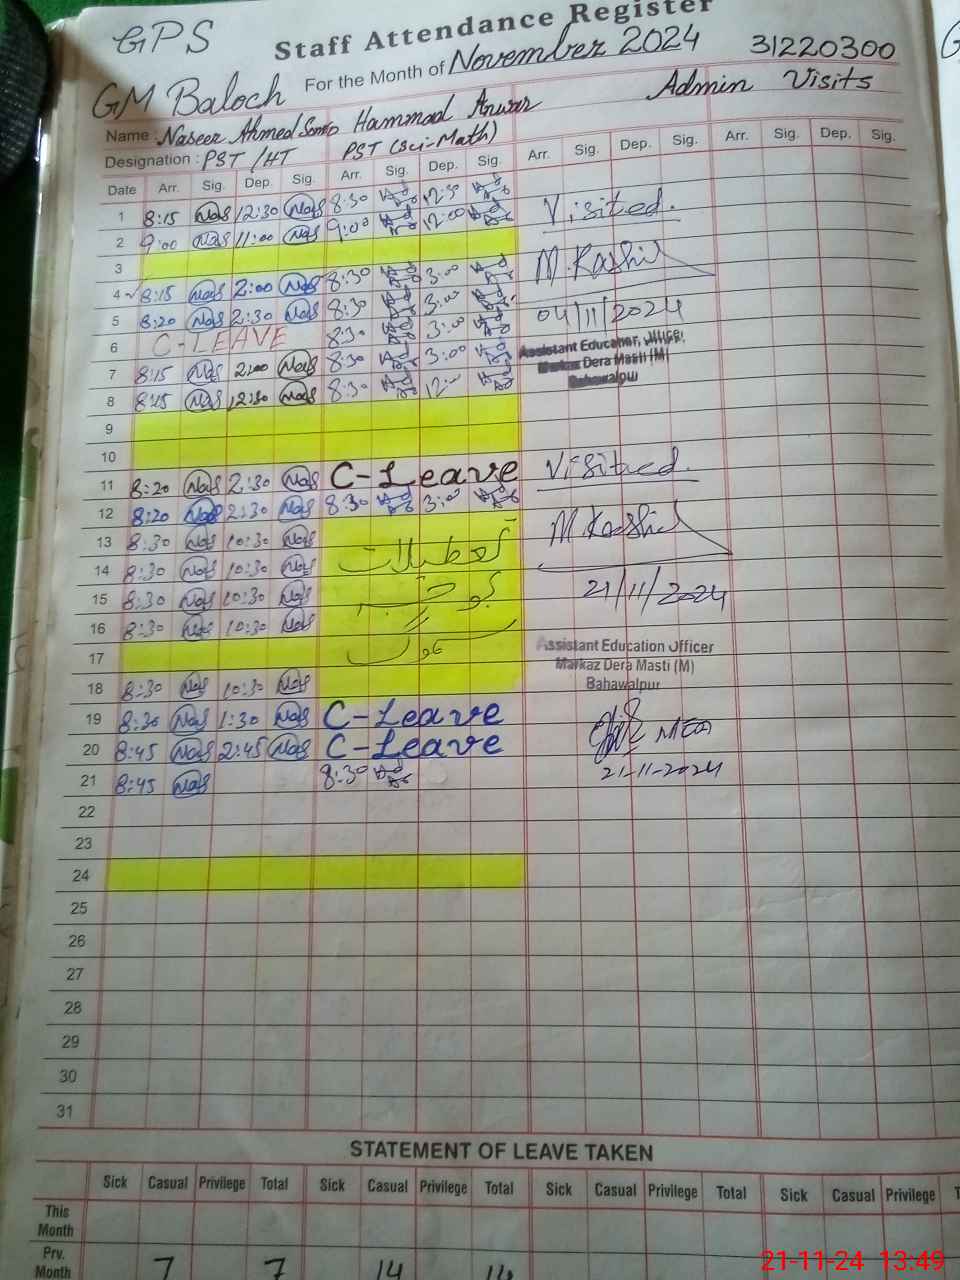 GPS
Staff Attendance Register
GM Baloch For the Month of November 2024 31220300
Admin Visits
Name : Naseer Ahmed Hammad Anwar
Designation : PST / HT PST (Sci-Math)
Arr. Sig. Dep. Sig. Arr. Sig. Dep. Sig.
Date Arr. Sig. Dep. Sig. Arr. Sig. Dep. Sig.
1 8:15 Nas 12:30 Nas 8:30 12:30
Visited.
2 9:00 Nas 11:00 Nas 9:00 12:00
3
M. Kashif
4 8:15 Nas 2:00 Nas 8:30 3:00
5 8:20 Nas 2:30 Nas 8:30 3:00
04/11/2024
6 C-LEAVE 8:30 3:00
Assistant Education
7 8:15 Nas 2:00 Nas 8:30 3:00
Markaz Dera Masti (M)
8 8:15 Nas 12:30 Nas 8:30 12:00
Bahawalpur
9
10
11 8:20 Nas 2:30 Nas C-Leave
Visited.
12 8:20 Nas 2:30 Nas 8:30 3:00
13 8:30 Nas 10:30 Nas تعطیلات
M. Kashif
14 8:30 Nas 10:30 Nas
15 8:30 Nas 10:30 Nas بوجہ
21/11/2024
16 8:30 Nas 10:30 Nas
17 سموگ
Assistant Education Officer
Markaz Dera Masti (M)
Bahawalpur
18 8:30 Nas 10:30 Nas
19 8:30 Nas 1:30 Nas C-Leave
20 8:45 Nas 2:45 Nas C-Leave
MEA
21 8:45 Nas 8:30
21-11-2024
22
23
24
25
26
27
28
29
30
31
STATEMENT OF LEAVE TAKEN
Sick Casual Privilege Total Sick Casual Privilege Total Sick Casual Privilege Total Sick Casual Privilege
This Month
Prv. Month 7 7 14 14
21-11-24 13:49